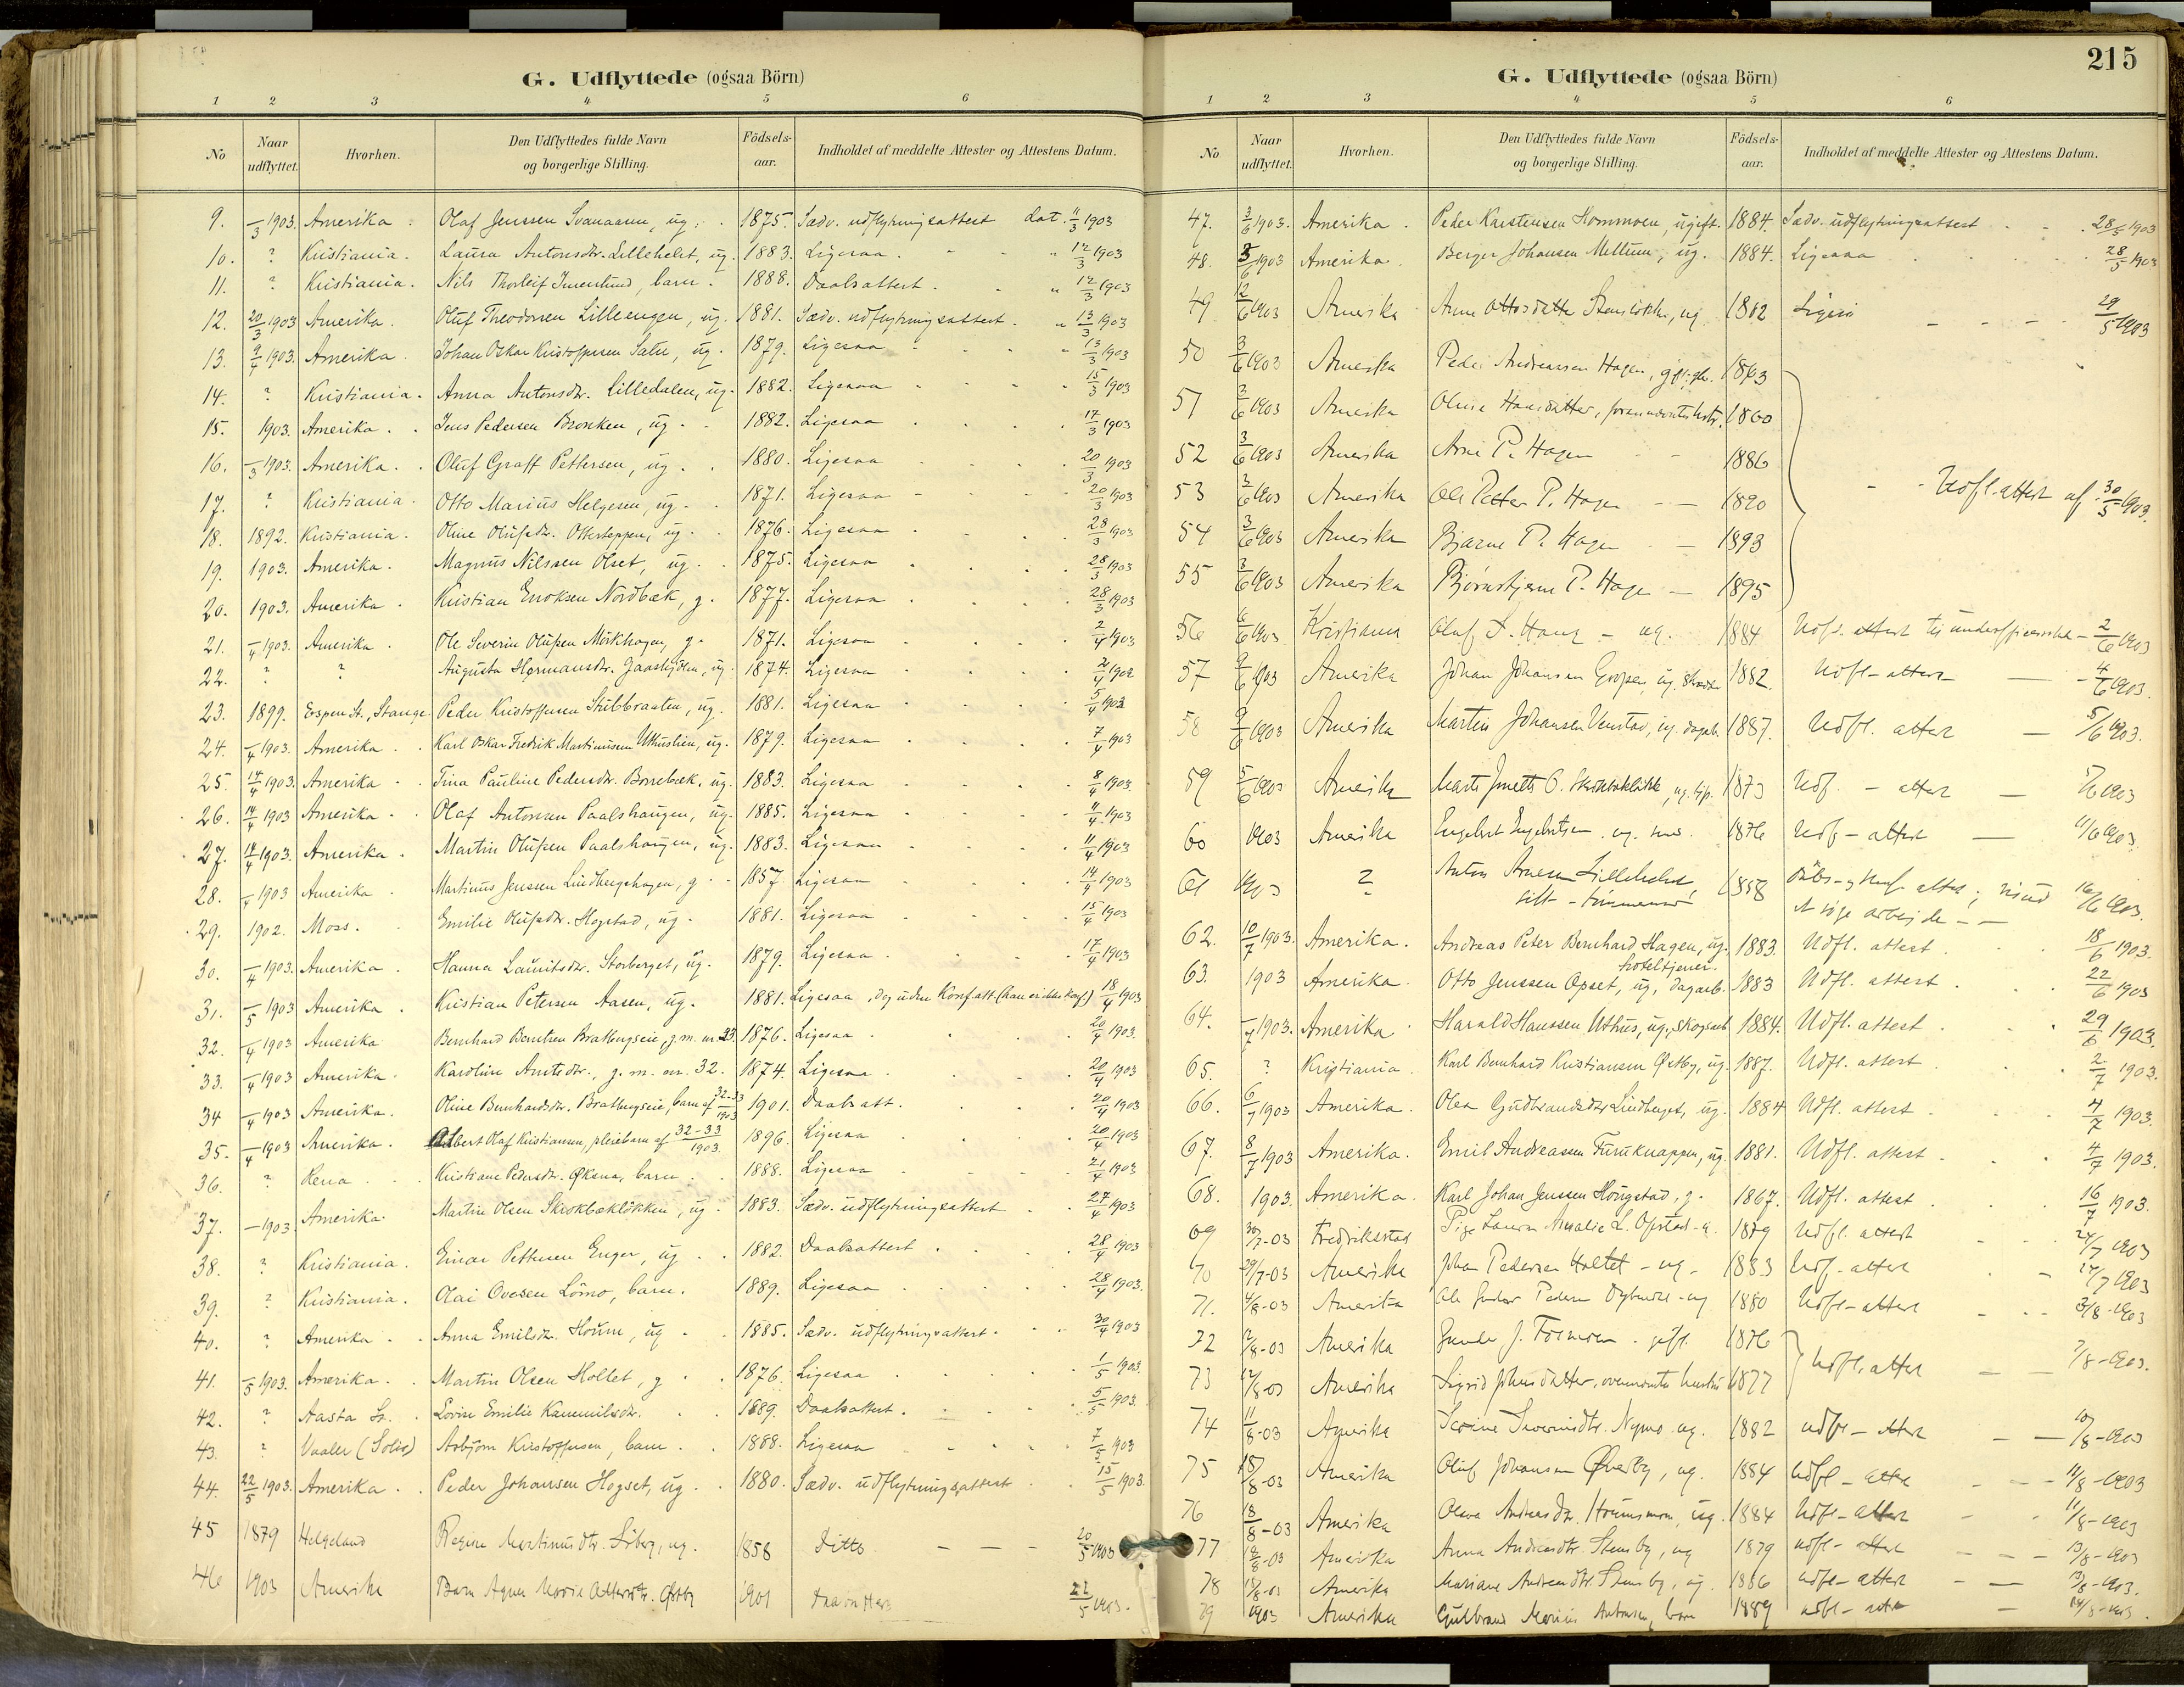 G. Udflyttede (ogsaa Börn)
1 2 3 4 5 6
No Naar udflyttet. Hvorhen. Den Udflyttedes fulde Navn og borgerlige Stilling. Födsels-aar. Indholdet af meddelte Attester og Attestens Datum.
9. –/3 1903. Amerika. Olaf Jenssen Svanaaen, ug. 1875. Sædv. udflytningsattest dat. 11/3 1903
10. ? Kristiania. Laura Antonsdtr. Lilleholet, ug. 1883. Ligesaa. " 12/3 1903
11. ? Kristiania. Nils Thorleif, barn. 1888. Daabsattest. " 12/3 1903
12. 20/3 1903 Amerika. Oluf Theodorsen Lilleengen, ug. 1881. Sædv. udflytningsattest. " 13/3 1903
13. 9/4 1903. Amerika. Johan Oskar Kristoffersen Satu, ug. 1879. Ligesaa " 13/3 1903
14. ? Kristiania. Anna Antonsdtr. Lilledalen, ug. 1882. Ligesaa 15/3 1903
15. 1903. Amerika. Jens Pedersen Bronken, ug. 1882. Ligesaa 17/3 1903
16. –/3 1903. Amerika. Oluf Graff Pettersen, ug. 1880. Ligesaa 20/3 1903
17. ? Kristiania. Otto Marius Helgesen, ug. 1871. Ligesaa 20/3 1903
18. 1892. Kristiania. Oline Olufsdtr. Otterteppen, ug. 1876. Ligesaa 28/3 1903
19. 1903. Amerika. Magnus Nilssen Olset, ug. 1875. Ligesaa 28/3 1903
20. 1903. Amerika. Kristian Eriksen Nordbæk, g. 1877. Ligesaa 28/3 1903
21. –/4 1903. Amerika. Ole Severin Olufsen Mörkhagen, g. 1871. Ligesaa 2/4 1903
22. ? ? Augusta Hermansdtr. Gaashyllen, ug. 1874. Ligesaa 2/4 1903
23. 1899. Espen St., Stange Peder Kristoffersen Stubbraaten, ug. 1881. Ligesaa 5/4 1903
24. –/4 1903. Amerika. Karl Oskar Fredrik Martinusen Uthuslien, ug. 1879. Ligesaa 7/4 1903
25. 14/4 1903. Amerika. Tina Pauline Pedersdtr. Borrebæk, ug. 1883. Ligesaa 8/4 1903
26. 14/4 1903 Amerika. Olaf Antonsen Paalshaugen, ug. 1885. Ligesaa 11/4 1903
27. 14/4 1903. Amerika. Martin Olufsen Paalshaugen, ug. 1883. Ligesaa 11/4 1903
28. –/4 1903 Amerika. Martinus Jenssen Lindbergshagen, g. 1857 Ligesaa 14/4 1903
29. 1902. Moss. Emilie Olufsdtr. Hogstad, ug. 1881. Ligesaa 15/4 1903
30. –/4 1903. Amerika. Hanna Lauritsdtr. Storberget, ug. 1879. Ligesaa. 17/4 1903
31. –/5 1903 Amerika. Kristian Petersen Aasen, ug. 1881. Ligesaa, dog uden Konf.att. (han er ikke konf.) 18/4 1903
32. –/4 1903 Amerika Bernhard Berntsen Bratbergseie, g. m. nr. 33. 1876. Ligesaa 20/4 1903.
33. –/4 1903 Amerika. Karoline Anetsdtr., g. m. nr. 32. 1874. Ligesaa. 20/4 1903
34 –/4 1903 Amerika. Oline Bernhardsdtr. Bratbergseie, barn af 32-33/1903 1901. Daabsatt. 20/4 1903
35. –/4 1903 Amerika. Albert Olaf Kristiansen, pleiebarn af 32-33/1903. 1896. Ligesaa 20/4 1903
36. ? Rena Kristiane Pedersdtr. Öksna, barn. 1888. Ligesaa 21/4 1903
37. –1903. Amerika. Martin Olsen Skrokbæklökken, ug. 1883. Sædv. udflytningsattest 27/4 1903
38. ? Kristiania. Einar Pettersen Enger, ug. 1882. Daabsattest 28/4 1903
39. ? Kristiania. Olai Ovesen Lömo, barn. 1889. Ligesaa 28/4 1903.
40. ? Amerika. Anna Emilsdtr. Houm, ug. 1885. Sædv. udflytningsattest. 30/4 1903
41. –/5 1903. Amerika. Martin Olsen Hollet, g. 1876. Ligesaa 1/5 1903.
42. ? Aasta St. Lovise Emilie Kammilsdtr. 1889. Daabsattest. 5/5 1903.
43. ? Vaaler (Solør) Asbjörn Kristoffersen, barn. 1888. Ligesaa 7/5 1903
44. 22/5 1903. Amerika. Peder Johansen Hogset, ug. 1880. Sædv. udflytningsattest 15/5 1903.
45 1879 Helgeland Regine Martinusdtr. Siberg, ug. 1858 Ditto 20/5 1903
46 1903 Amerika Barn Agnes Marie Østby 1901 22/5 1903.
215
G. Udflyttede (ogsaa Börn)
1 2 3 4 5 6
No Naar udflyttet. Hvorhen. Den Udflyttedes fulde Navn og borgerlige Stilling. Födsels-aar. Indholdet af meddelte Attester og Attestens Datum.
47. 3/6 1903. Amerika. Peder Karstensen Hommoen, ugift. 1884. Sædv. udflytningsattest 28/5 1903
48. 3/6 1903 Amerika. Berger Johansen Mellum, ug. 1884. Ligesaa 28/5 1903
49 12/6 1903 Amerika Anne Ottosdatter, ug 1882 29/5 1903
50 3/6 1903 Amerika Peder Andreassen Hagen, 1863
51 3/6 1903 Amerika Oline Hansdatter, 1860
52 3/6 1903 Amerika Arne P. Hagen 1886
53 3/6 1903 Amerika Ole Petter P. Hagen 1890
54 3/6 1903 Amerika Bjarne P. Hagen 1893
Udfl.attest af 30/5 1903.
55 3/6 1903 Amerika Bjørnstjerne P. Hagen 1895
56 6/6 1903 Kristiania Oluf ug. 1884 Udfl. attest til 2/6 1903
57 9/6 1903 Amerika Johan Johansen ug. 1882. Udfl-attest 4/6 1903.
58 9/6 1903 Amerika Martin Johansen ug. dagarb. 1887. Udfl. attest 5/6 1903.
59 5/6 1903 Amerika 1873 Udfl. - attest 5/6 1903
60 1903 Amerika Engebret Engebretsen ug. 1876 Udfl - attest 11/6 1903.
61 1903 ? Anton Arnesen Lilleholet, 1858 16/6 1903.
at söge arbejde
62. 10/7 1903. Amerika. Andreas Peter Bernhard Hagen, ug. 1883. Udfl. attest 18/6 1903.
hoteltjener.
63. 1903 Amerika. Otto Jenssen Opset, ug., dagarb. 1883 Udfl. attest 22/6 1903
64. –/7 1903. Amerika Harald Hanssen Uthus, ug., skogsarb 1884. Udfl. attest 29/6 1903.
65. ? Kristiania Karl Bernhard Kristiansen Østby, ug. 1887. Udfl. attest 2/7 1903.
66. 6/7 1903 Amerika. Olea Gudbrandsdtr. Lindberget, ug. 1884 Udfl. attest 4/7 1903.
67. 8/7 1903 Amerika. Emil Andreassen Furuknappen, ug. 1881. Udfl. attest 4/7 1903.
68. 1903. Amerika. Karl Johan Jenssen Hougstad, g. 1867. Udfl. attest 16/7 1903.
69 30/7-03 Fredrikstad Pige Laura Amalie L. Opstad - u. 1879 Udfl. attest 24/7 1903
70 29/7-03 Amerika Johan Pedersen Holtet - ug - 1883 Udfl. attest 27/7 1903
71. 4/8-03 Amerika Ole Pedersen ug 1880 Udfl-attest 3/8-1903
72 12/8-03 Amerika gift. 1876
Udfl. attest 7/8-1903.
73 12/8-03 Amerika Sigrid Johansdatter, ovennævntes hustru 1877
74 11/8-03 Amerika Nymo ug. 1882 udfl - attest 10/8-1903
75 18/8-03 Amerika Oluf Johansen Øverby, ug. 1884 Udfl - attest 11/8-1903
76 18/8-03 Amerika Olava Andreasdtr. Houmsmoen, ug. 1884 Udfl-attest 11/8-1903
77 18/8-03 Amerika Anna Andreasdtr. Stensby, ug 1879 udfl-attest 13/8-1903
78 18/8-03 Amerika Mariane Andreasdtr. Stensby, ug. 1886 udfl-attest 13/8-1903.
79 1903 Amerika Gulbrand Marius Antonsen, barn 1889 udfl-attest 14/8-1903.